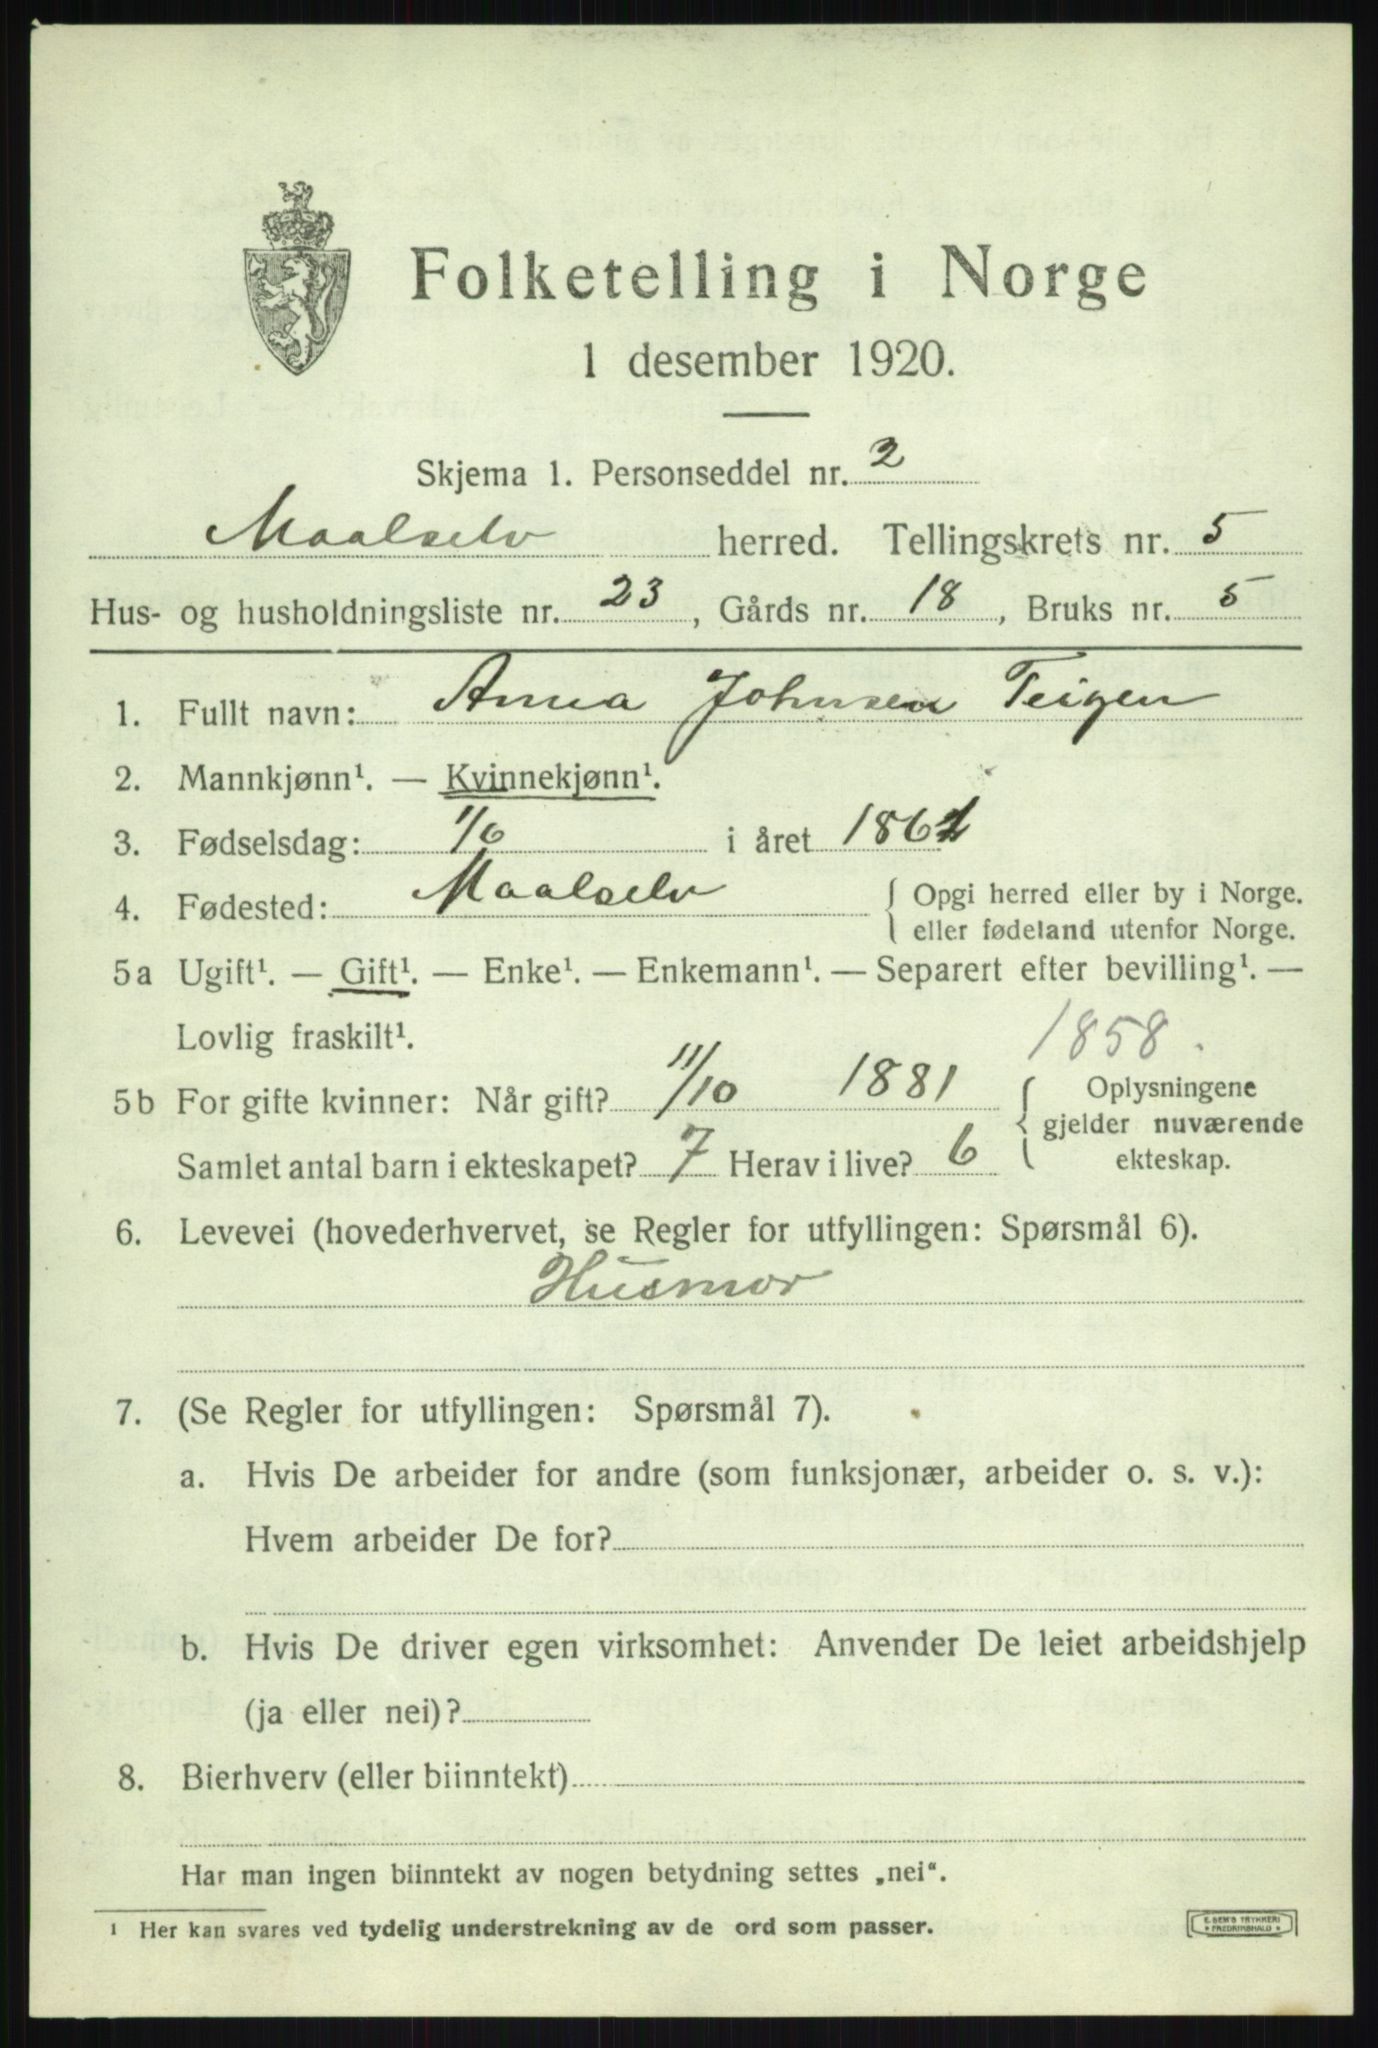 Folketelling i Norge
1 desember 1920.
Skjema 1. Personseddel nr. 2
Maalselv herred. Tellingskrets nr. 5
Hus- og husholdningsliste nr. 23, Gårds nr. 18, Bruks nr. 5
1. Fullt navn: Anna Johnsen Teigen
2. Mannkjønn¹. — Kvinnekjønn¹.
3. Fødselsdag: 1/6 i året 1861
4. Fødested: Maalselv { Opgi herred eller by i Norge.
eller fødeland utenfor Norge.
5a Ugift¹. — Gift¹. — Enke¹. — Enkemann¹. — Separert efter bevilling¹. —
Lovlig fraskilt¹. 1858.
5b For gifte kvinner: Når gift? 11/10 1881 { Oplysningene
gjelder nuværende
Samlet antal barn i ekteskapet? 7 Herav i live? 6 ekteskap.
6. Levevei (hovederhvervet, se Regler for utfyllingen: Spørsmål 6).
Husmor
7. (Se Regler for utfyllingen: Spørsmål 7).
a. Hvis De arbeider for andre (som funksjonær, arbeider o. s. v.):
Hvem arbeider De for?
b. Hvis De driver egen virksomhet: Anvender De leiet arbeidshjelp
(ja eller nei)?
8. Bierhverv (eller biinntekt)
Har man ingen biinntekt av nogen betydning settes „nei“.
¹ Her kan svares ved tydelig understrekning av de ord som passer.
E. SEM'S TRYKKERI
FREDRIKSHALD